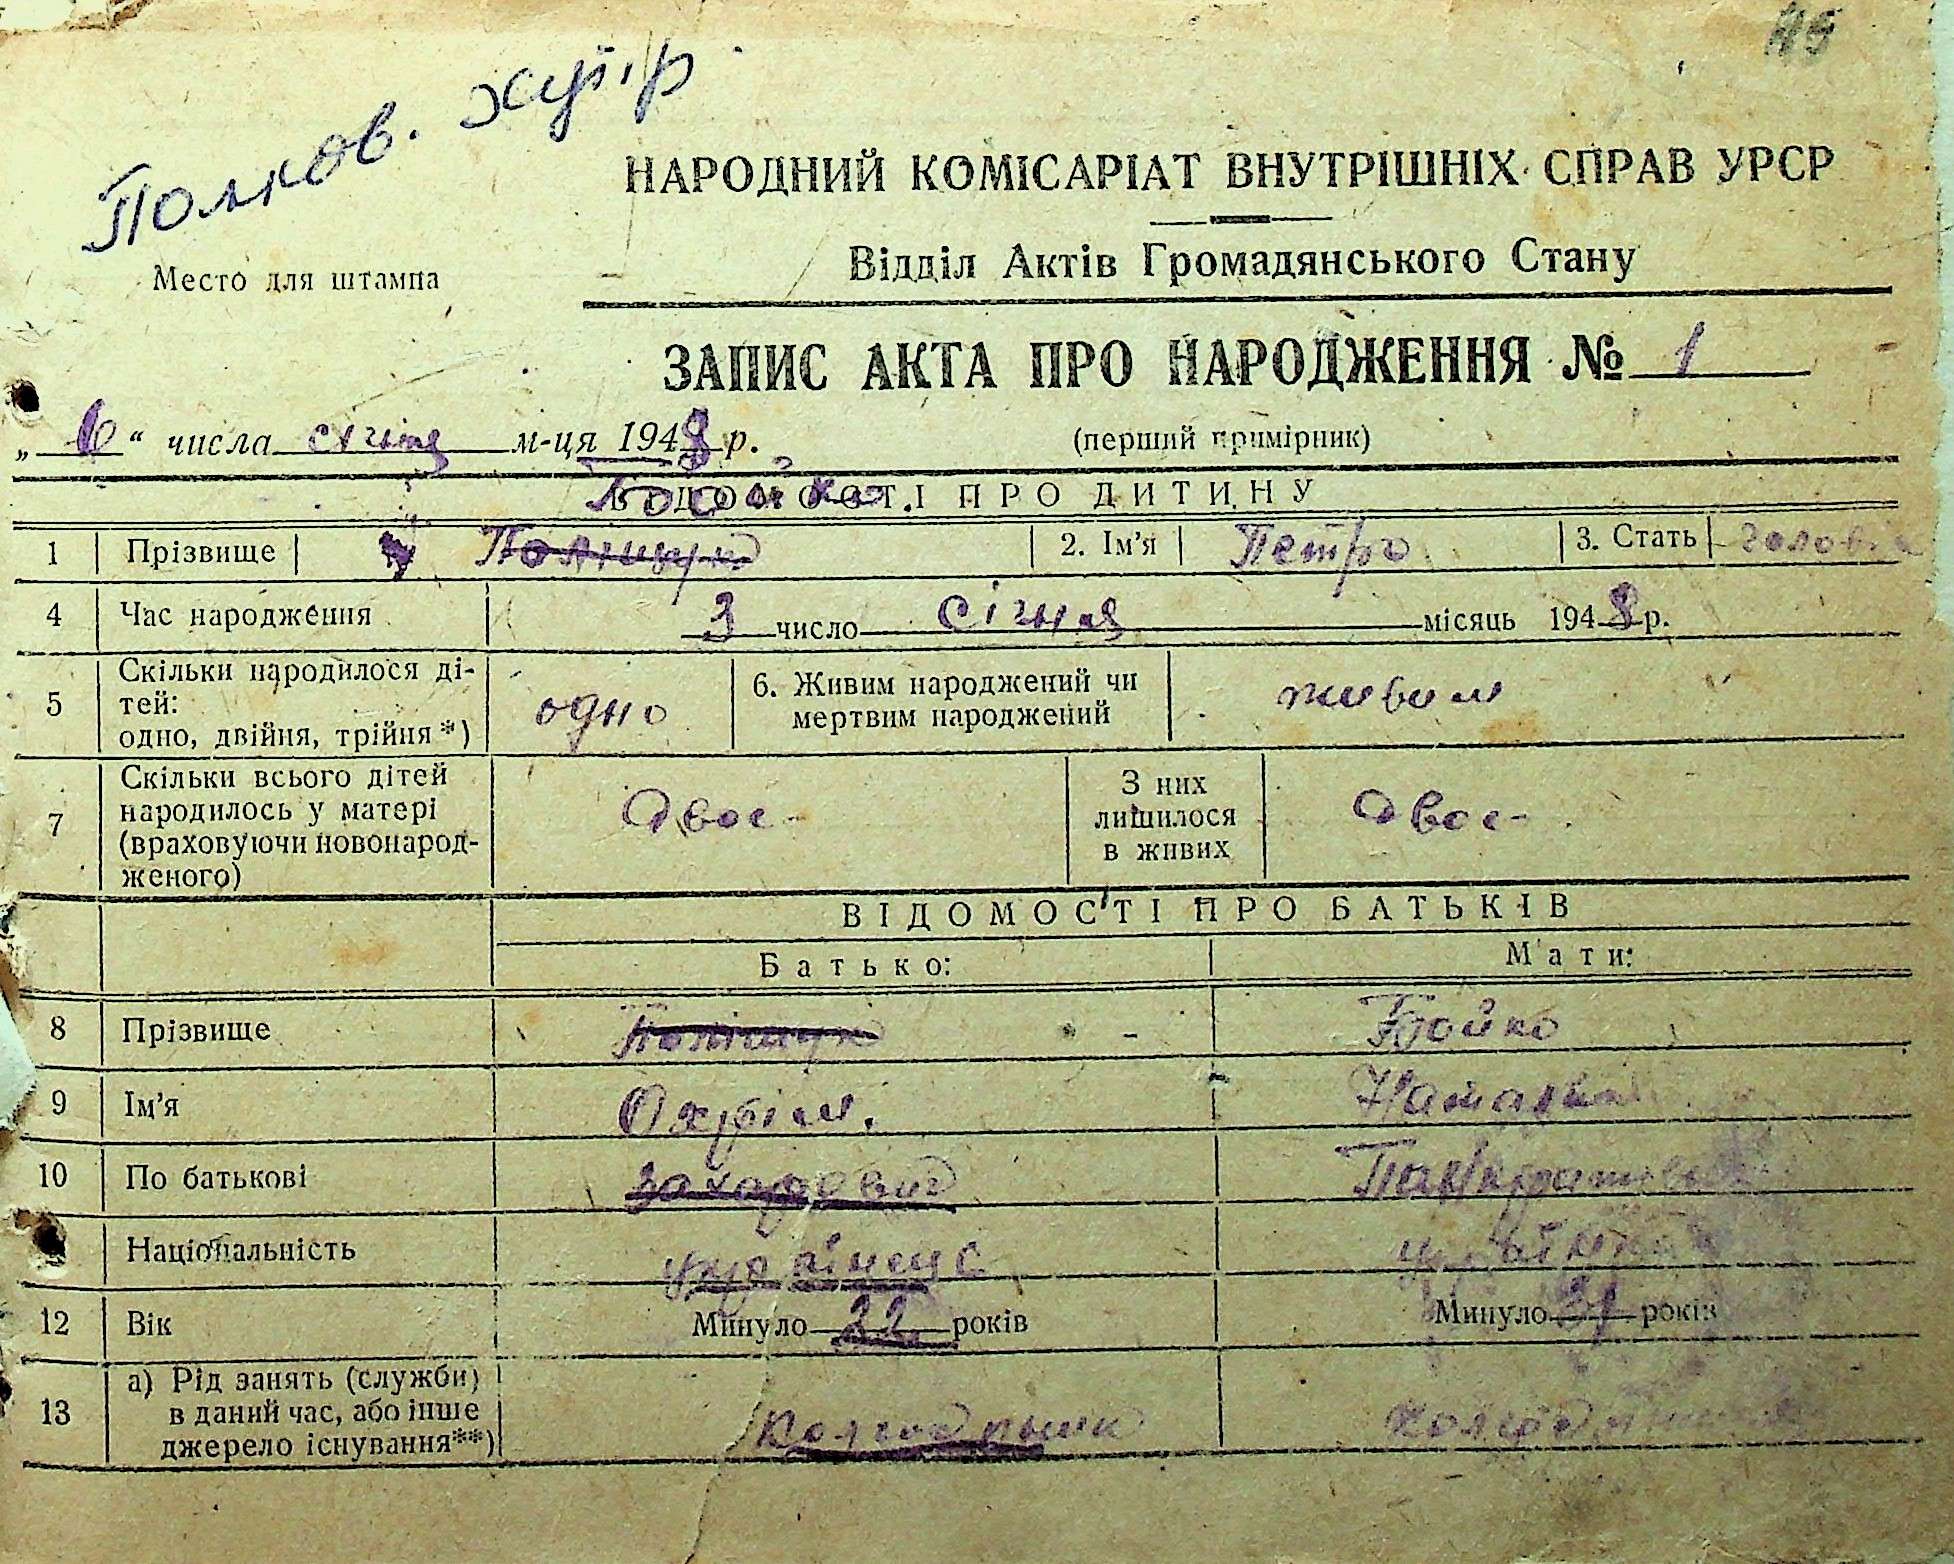 Полков. хутір
НАРОДНИЙ КОМІСАРІАТ ВНУТРІШНІХ СПРАВ УРСР
Відділ Актів Громадянського Стану
Место для штампа
ЗАПИС АКТА ПРО НАРОДЖЕННЯ № 1
„ 6 “ числа січня м-ця 1948 р. (перший примірник)
ВІДОМОСТІ ПРО ДИТИНУ
Бойко.
1 Прізвище Поліщук 2. Ім'я Петро 3. Стать
4 Час народження 3 число січня місяць 1948 р.
5 Скільки народилося ді-
тей:
одно, двійня, трійня *) одно 6. Живим народжений чи
мертвим народжений живим
7 Скільки всього дітей
народилось у матері
(враховуючи новонарод-
женого) Двоє- З них
лишилося
в живих Двоє-
ВІДОМОСТІ ПРО БАТЬКІВ
Батько: Мати:
8 Прізвище Поліщук - Бойко
9 Ім'я Охрім.
10 По батькові Захарович
Національність українець українка
12 Вік Минуло 22 років Минуло 21 років
13 а) Рід занять (служби)
в даний час, або інше
джерело існування**) колгоспник